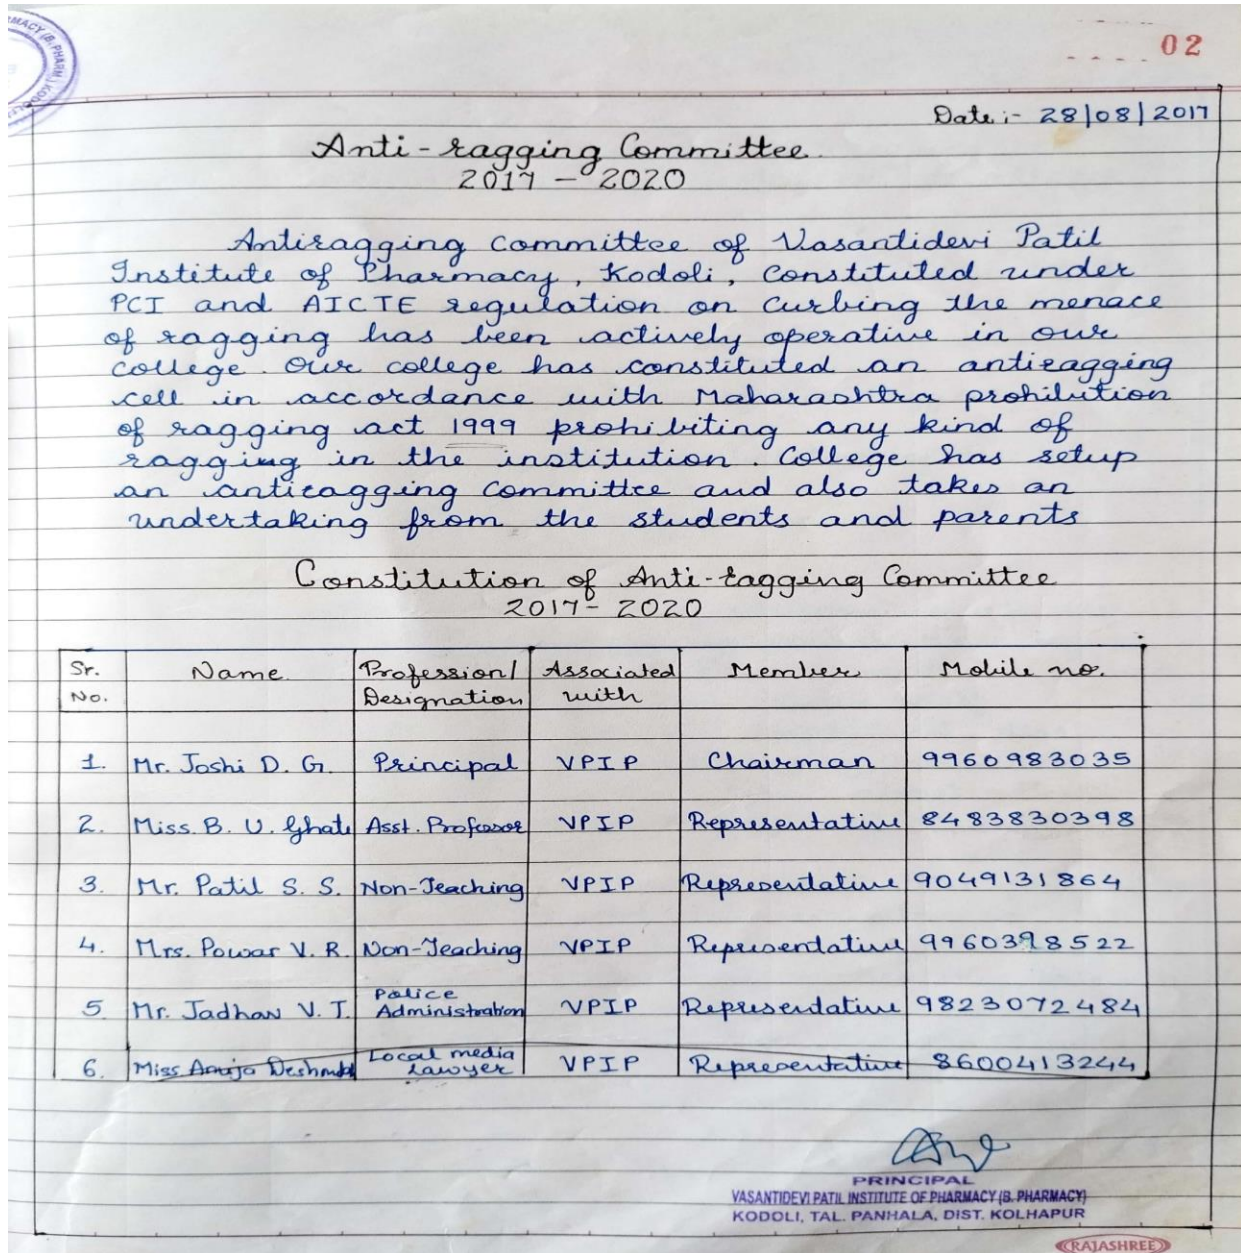 MACY (B. PHARM.) KODOLI
02
Date :- 28/08/2017
Anti-ragging Committee
2017 - 2020
Antiragging committee of Vasantidevi Patil
Institute of Pharmacy, Kodoli, Constituted under
PCI and AICTE regulation on Curbing the menace
of ragging has been actively operative in our
college. Our college has constituted an antiragging
cell in accordance with Maharashtra prohibution
of ragging act 1999 prohibiting any kind of
ragging in the institution. College has setup
an antiragging committee and also takes an
undertaking from the students and parents
Constitution of Anti-ragging Committee
2017- 2020
Sr. No. Name Profession/ Designation Associated with Member Mobile no.
1. Mr. Joshi D. G. Principal VPIP Chairman 9960983035
2. Miss. B. U. Ghate Asst. Professor VPIP Representative 8483830398
3. Mr. Patil S. S. Non-Teaching VPIP Representative 9049131864
4. Mrs. Powar V. R. Non-Teaching VPIP Representative 9960398522
5 Mr. Jadhav V. T. Police Administration VPIP Representative 9823072484
6. Miss Deshmukh Local media Lawyer VPIP Representative 8600413244
PRINCIPAL
VASANTIDEVI PATIL INSTITUTE OF PHARMACY (B. PHARMACY)
KODOLI, TAL. PANHALA, DIST. KOLHAPUR
RAJASHREE